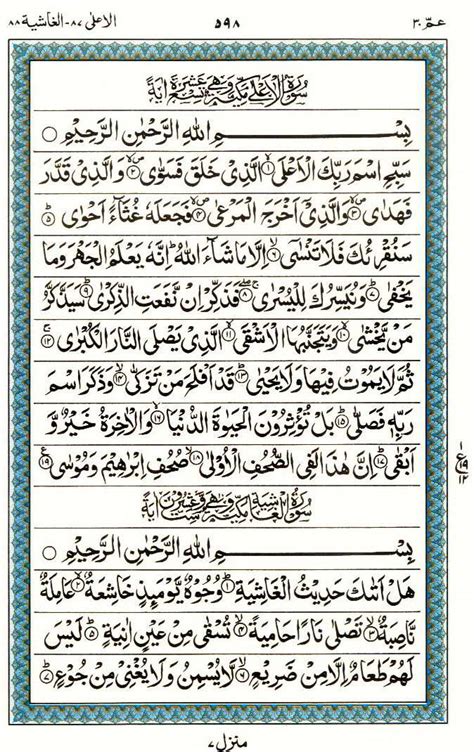 عمّ ٣٠ ٥٩٨ الاعلى ٨٧-الغاشية ٨٨
سُوْرَةُ الْاَعْلٰى مَكِّيَّةٌ وَّهِيَ تِسْعَ عَشْرَةَ اٰيَةً
بِسْمِ اللهِ الرَّحْمٰنِ الرَّحِيْمِ ○
سَبِّحِ اسْمَ رَبِّكَ الْاَعْلَى ۙ﴿۱﴾ الَّذِيْ خَلَقَ فَسَوّٰى ۪ۙ﴿۲﴾ وَالَّذِيْ قَدَّرَ
فَهَدٰى ۪ۙ﴿۳﴾ وَالَّذِيْۤ اَخْرَجَ الْمَرْعٰى ۪ۙ﴿۴﴾ فَجَعَلَهٗ غُثَآءً اَحْوٰى ؕ﴿۵﴾
سَنُقْرِئُكَ فَلَا تَنْسٰۤى ۙ﴿۶﴾ اِلَّا مَا شَآءَ اللهُ ؕ اِنَّهٗ يَعْلَمُ الْجَهْرَ وَمَا
يَخْفٰى ؕ﴿۷﴾ وَنُيَسِّرُكَ لِلْيُسْرٰى ۚۖ﴿۸﴾ فَذَكِّرْ اِنْ نَّفَعَتِ الذِّكْرٰى ؕ﴿۹﴾ سَيَذَّكَّرُ
مَنْ يَّخْشٰى ۙ﴿۱۰﴾ وَيَتَجَنَّبُهَا الْاَشْقَى ۙ﴿۱۱﴾ الَّذِيْ يَصْلَى النَّارَ الْكُبْرٰى ۚ﴿۱۲﴾
ثُمَّ لَا يَمُوْتُ فِيْهَا وَلَا يَحْيٰى ؕ﴿۱۳﴾ قَدْ اَفْلَحَ مَنْ تَزَكّٰى ۙ﴿۱۴﴾ وَذَكَرَ اسْمَ
رَبِّهٖ فَصَلّٰى ؕ﴿۱۵﴾ بَلْ تُؤْثِرُوْنَ الْحَيٰوةَ الدُّنْيَا ۖ﴿۱۶﴾ وَالْاٰخِرَةُ خَيْرٌ وَّ
اَبْقٰى ؕ﴿۱۷﴾ اِنَّ هٰذَا لَفِي الصُّحُفِ الْاُوْلٰى ۙ﴿۱۸﴾ صُحُفِ اِبْرٰهِيْمَ وَمُوْسٰى ﴿۱۹﴾
١ ع ١٩ ١٢
سُوْرَةُ الْغَاشِيَةِ مَكِّيَّةٌ وَّهِيَ سِتٌّ وَّعِشْرُوْنَ اٰيَةً
بِسْمِ اللهِ الرَّحْمٰنِ الرَّحِيْمِ ○
هَلْ اَتٰىكَ حَدِيْثُ الْغَاشِيَةِ ؕ﴿۱﴾ وُجُوْهٌ يَّوْمَئِذٍ خَاشِعَةٌ ۙ﴿۲﴾ عَامِلَةٌ
نَّاصِبَةٌ ۙ﴿۳﴾ تَصْلٰى نَارًا حَامِيَةً ۙ﴿۴﴾ تُسْقٰى مِنْ عَيْنٍ اٰنِيَةٍ ؕ﴿۵﴾ لَيْسَ
لَهُمْ طَعَامٌ اِلَّا مِنْ ضَرِيْعٍ ۙ﴿۶﴾ لَّا يُسْمِنُ وَلَا يُغْنِيْ مِنْ جُوْعٍ ؕ﴿۷﴾
منزل ٧